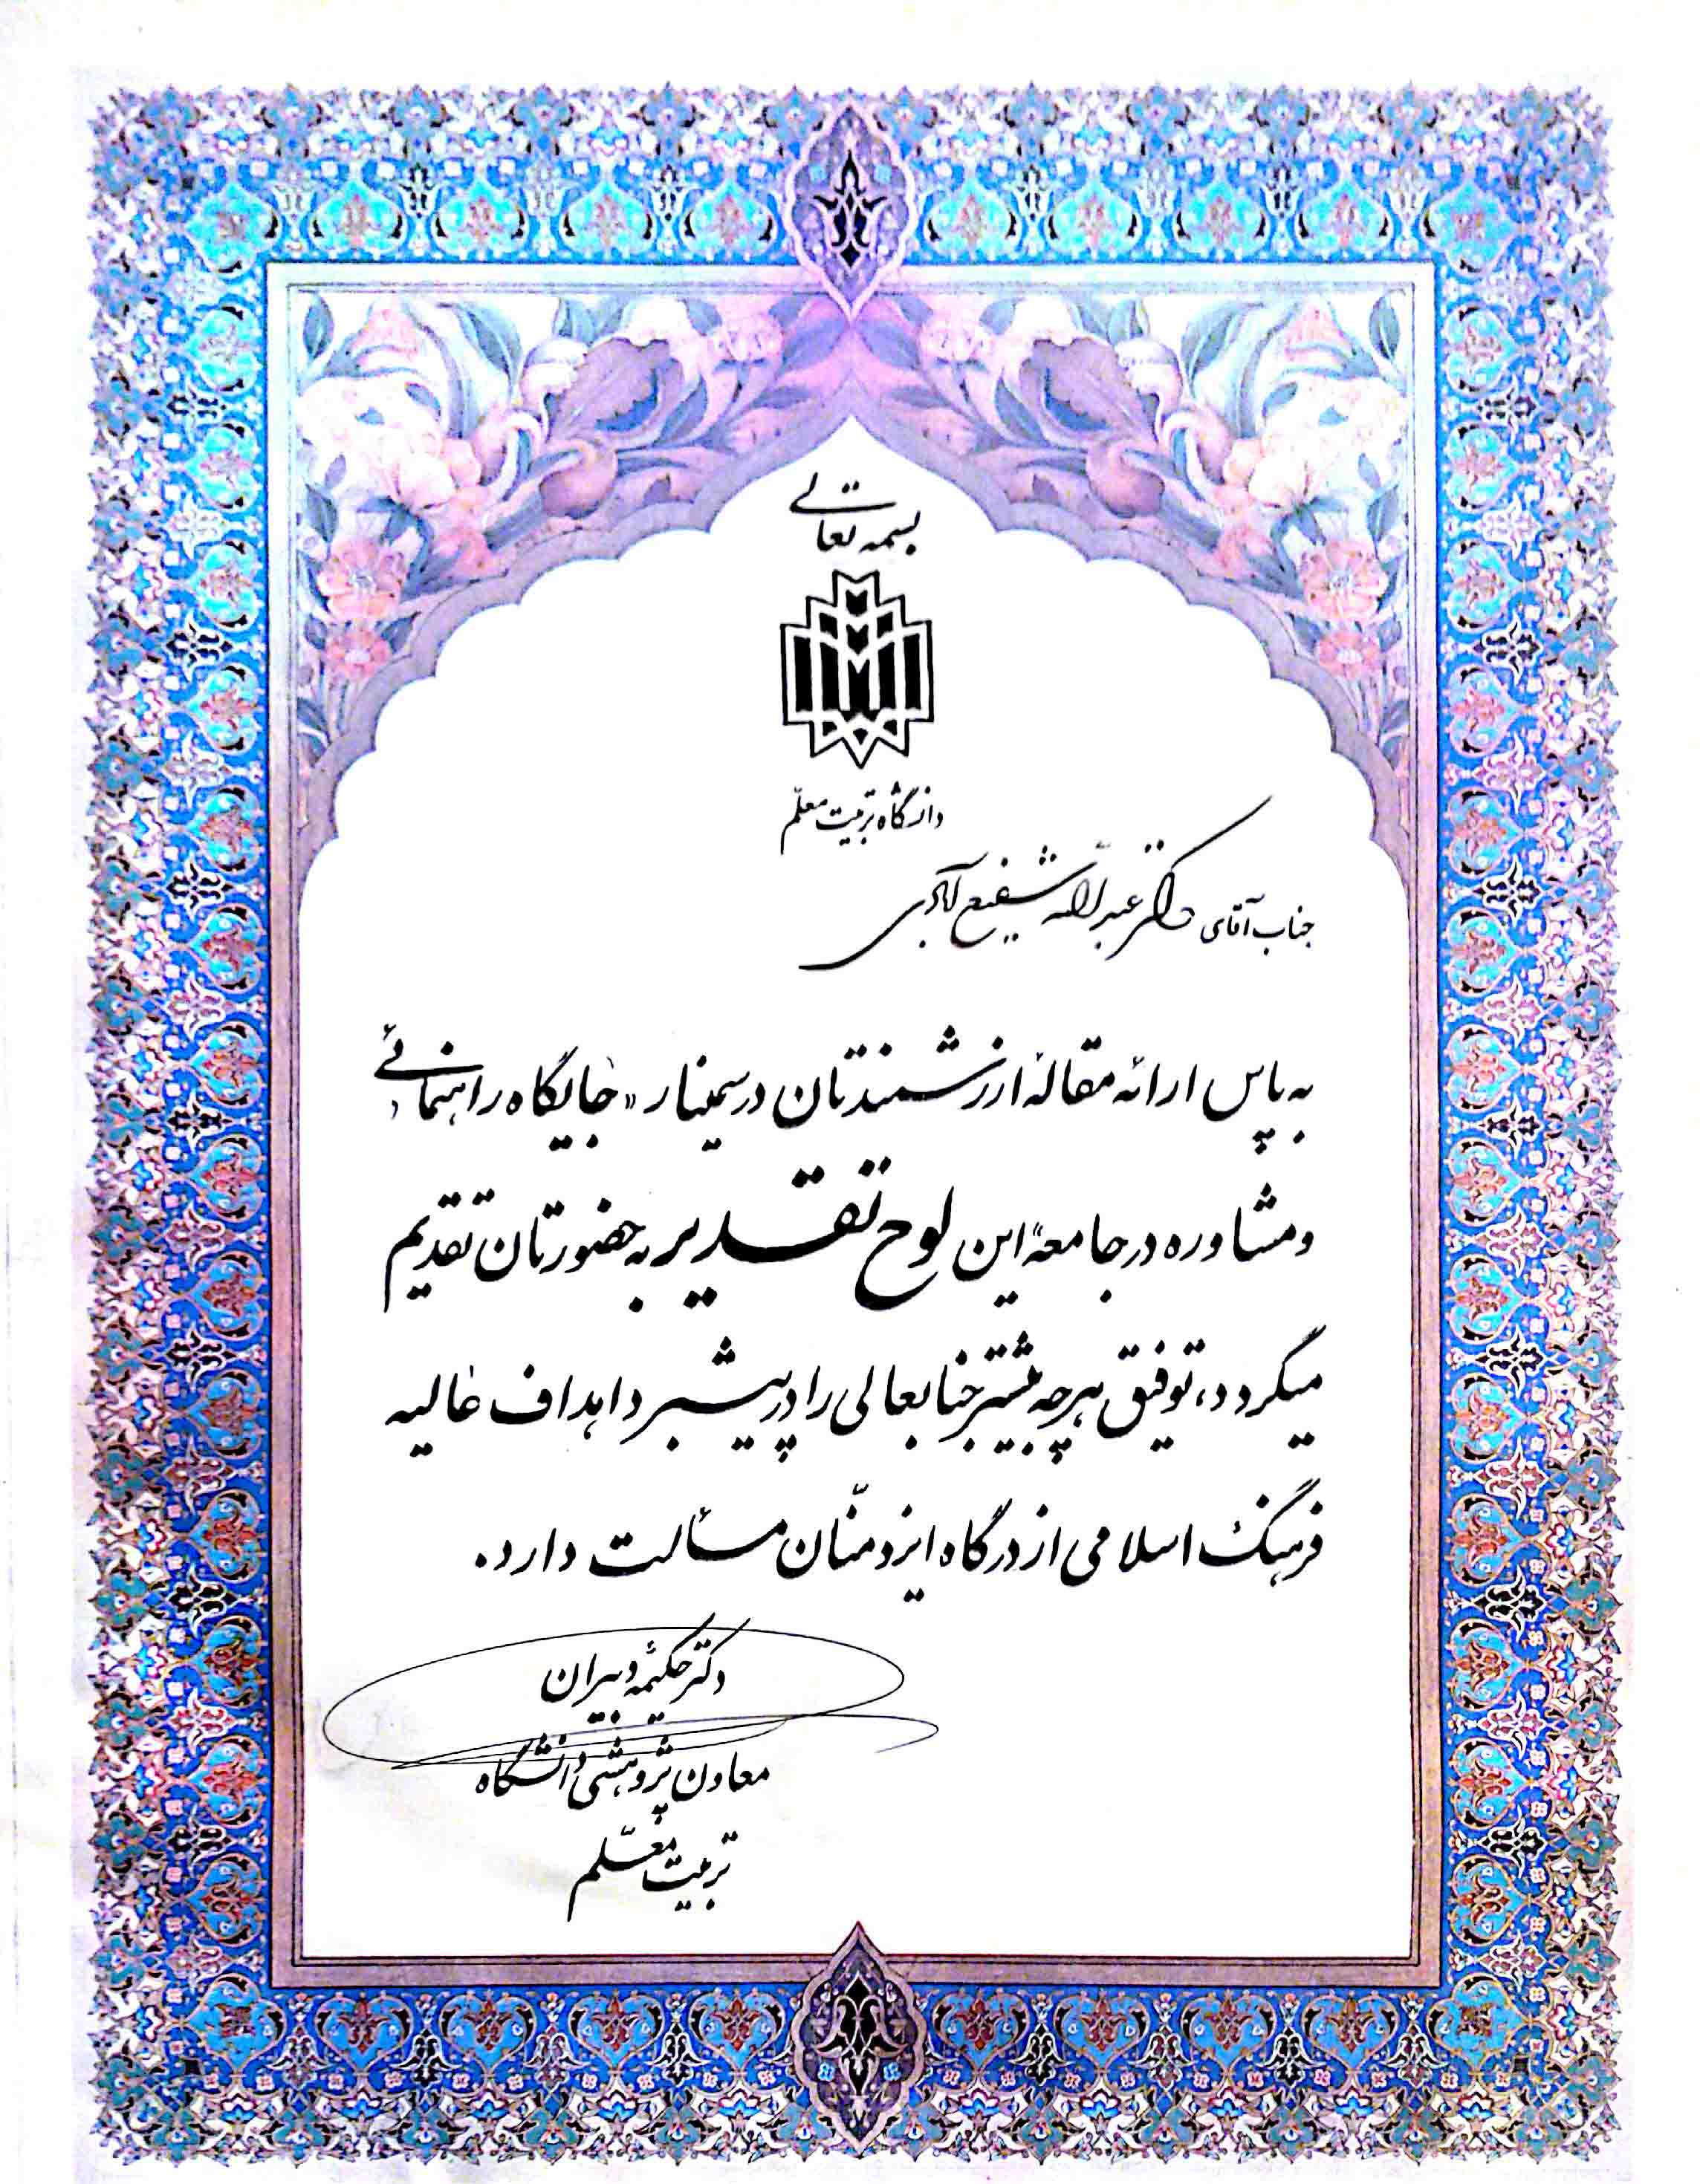 بسمه تعالی
دانشگاه تربیت معلّم
جناب آقای دکتر عبدالله شفیع آبادی
به پاس ارائه مقالهٔ ارزشمندتان در سمینار «جایگاه راهنمائی
و مشاوره در جامعه» این لوح تقدیر به حضورتان تقدیم
میگردد، توفیق هرچه بیشتر جنابعالی را در پیشبرد اهداف عالیه
فرهنگ اسلامی از درگاه ایزد منّان مسألت دارد.
دکتر حکیمه دبیران
معاون پژوهشی دانشگاه
تربیت معلّم